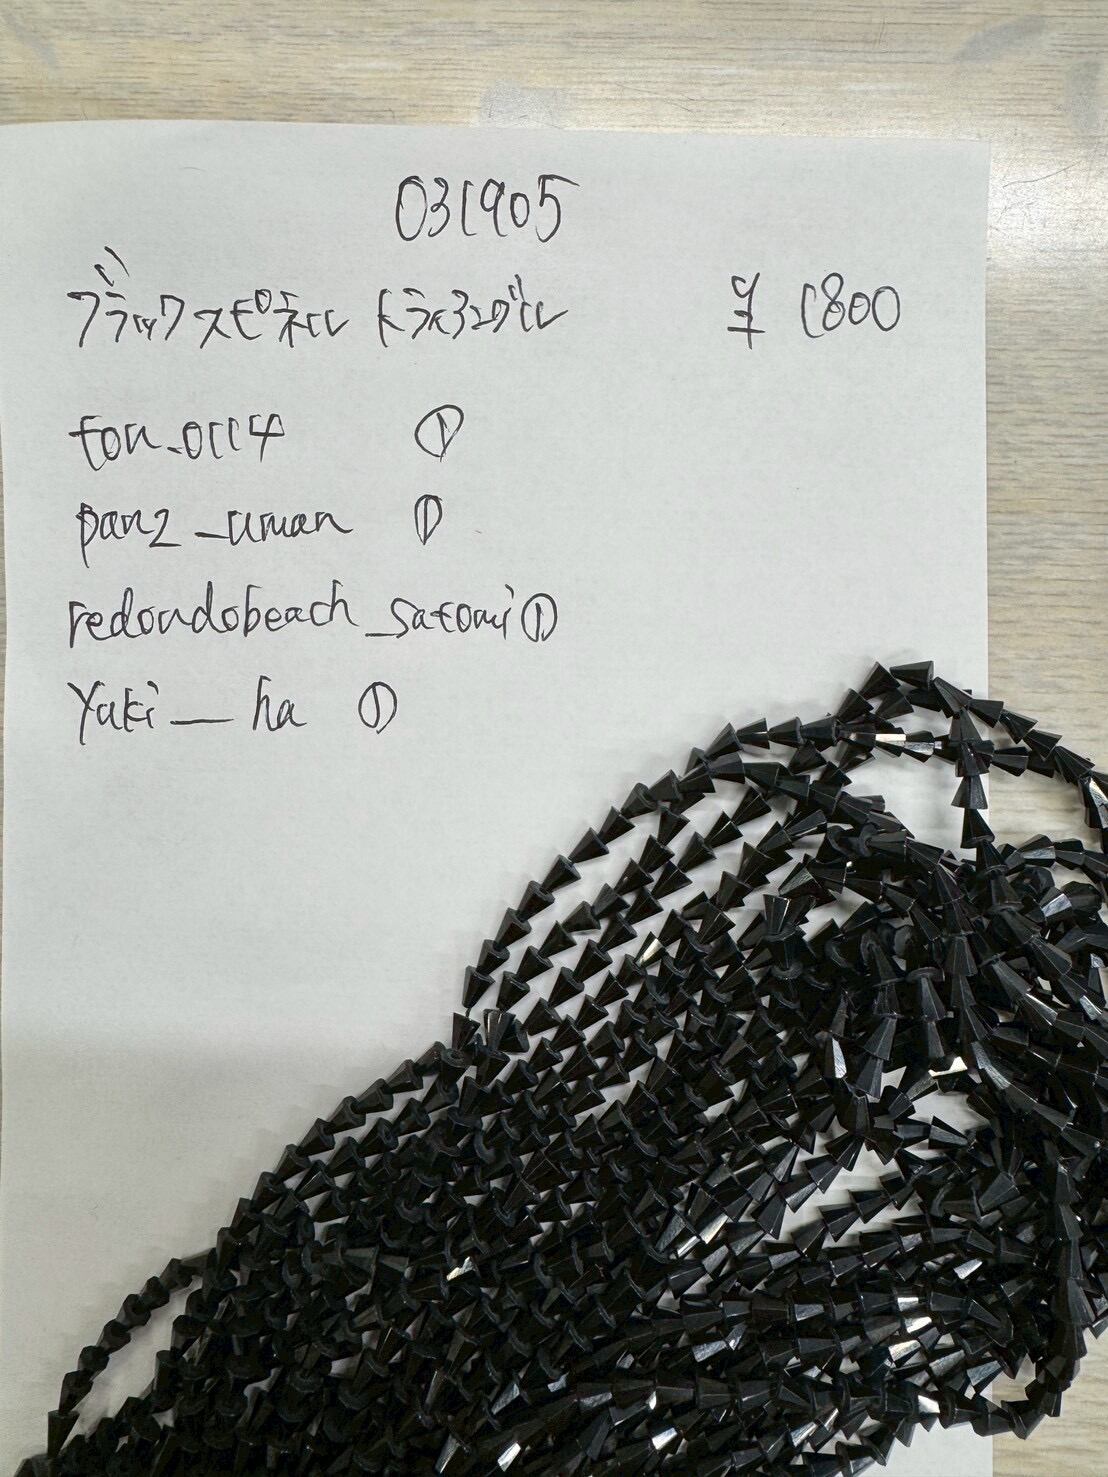 031905
ブラックスピネル トライアングル ¥1800
ton_0114 ①
panz_uman ①
redondobeach_satomi ①
Yuki__ha ①